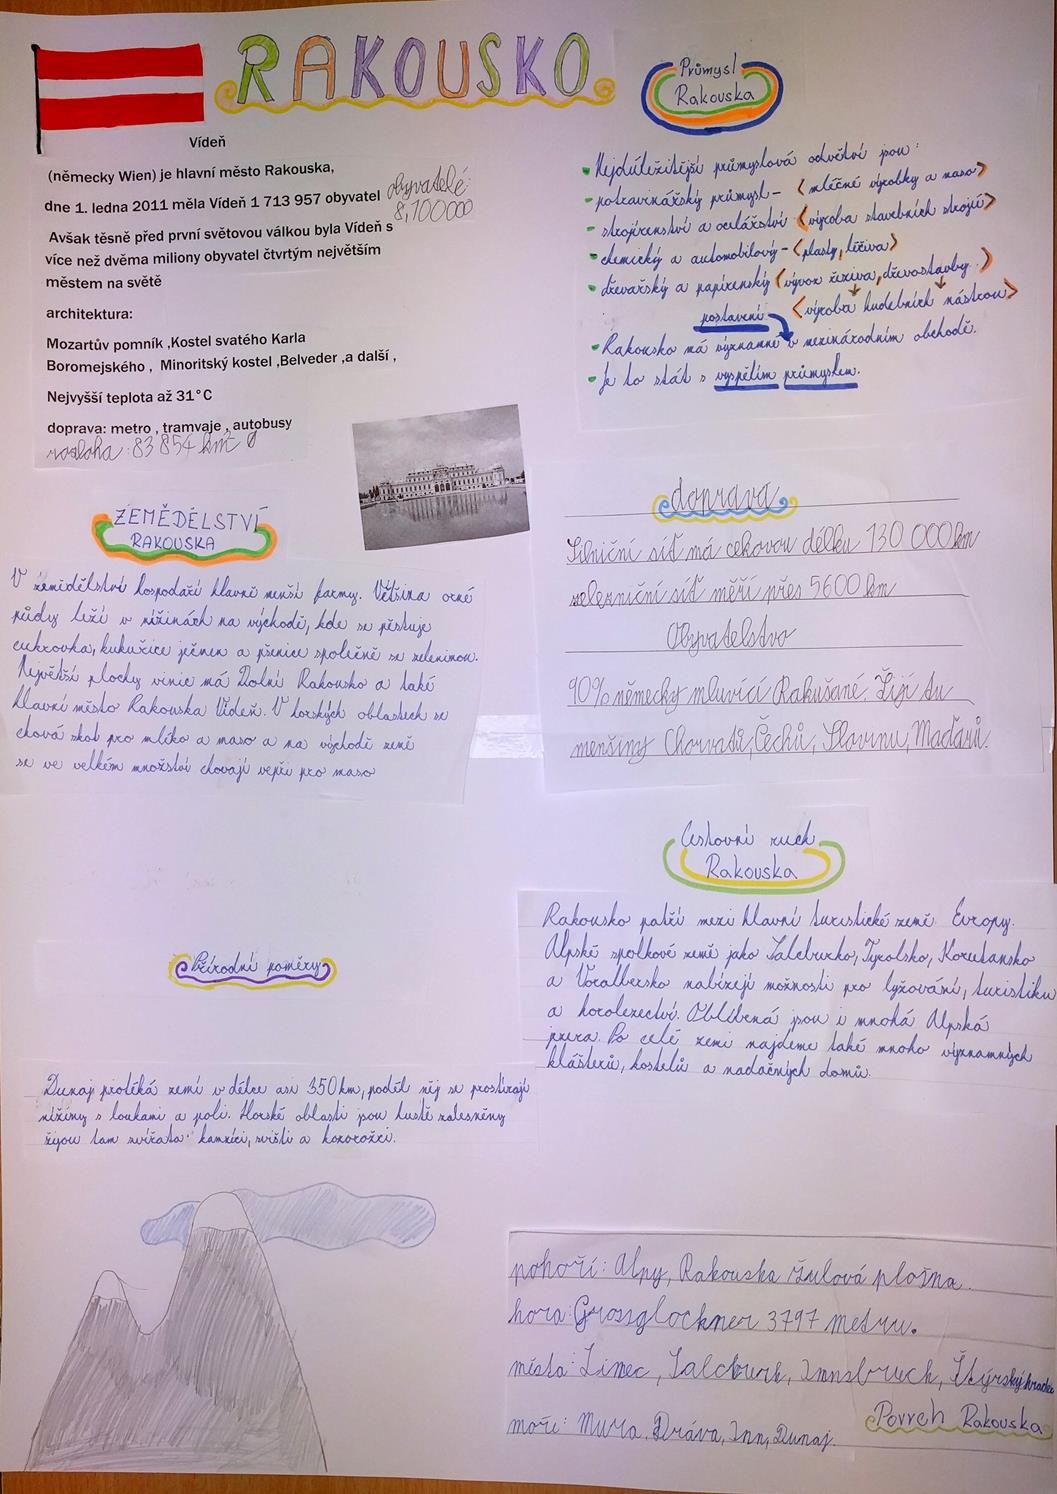 RAKOUSKO
Vídeň
(německy Wien) je hlavní město Rakouska,
dne 1. ledna 2011 měla Vídeň 1 713 957 obyvatel
obyvatelé:
8,100000
Avšak těsně před první světovou válkou byla Vídeň s
více než dvěma miliony obyvatel čtvrtým největším
městem na světě
architektura:
Mozartův pomník ,Kostel svatého Karla
Boromejského , Minoritský kostel ,Belveder ,a další ,
Nejvyšší teplota až 31°C
doprava: metro , tramvaje , autobusy
rozloha: 83 854 km
Průmysl
Rakouska
- Nejdůležitější průmyslová odvětví jsou:
- potravinářský průmysl - <mléčné výrobky a maso>
- strojírenství a ocelářství <výroba stavebních strojů>
- chemický a automobilový - <plasty, léčiva>
- dřevařský a papírenský (vývoz řeziva, dřevostavby.)
<výroba hudebních nástrou>
postavení
- Rakousko má významné v mezinárodním obchodě.
- Je to stát s vyspělím průmyslem.
ZEMĚDĚLSTVÍ
RAKOUSKA
V zemědělství hospodaří hlavně menší farmy. Většina orné
půdy leží v nížinách na východě, kde se pěstuje
cukrovka, kukuřice ječmen a pšenice společně se zeleninou.
Největší plochy vinic má Dolní Rakousko a také
hlavní město Rakouska Vídeň. V horských oblastech se
chová skot pro mlíko a maso a na východě země
se ve velkém množství chovají vepři pro maso
doprava
Silniční síť má celkovou délku 130 000 km
železniční síť měří přes 5600 km
Obyvatelstvo
90% německy mluvící Rakušané. Žijí tu
menšiny Chorvatů, Čechů, Slovinu, Maďarů.
Cestovní ruch
Rakouska
Rakousko patří mezi hlavní turistické země Evropy.
Alpské spolkové země jako Salcbursko, Tyrolsko, Korutansko
a Voralbersko nabízejí možnosti pro lyžování, turistiku
a horolezectví. Oblíbená jsou i mnohá Alpská
jezera. Po celé zemi najdeme také mnoho významných
klášterů, kostelů a nadačných domů.
Přírodní poměry
Dunaj protéká zemí v délce asi 350 km, podél něj se prostírají
nížiny s loukami a poli. Horské oblasti jsou hustě zalesněny
žijou tam zvířata: kamzíci, svišti a kozorožci.
pohoří: Alpy, Rakouska žulová plošna.
hora: Grossglockner 3797 metru.
města: Linec, Salcburk, Innsbruck, Štýrský hradec
moře: Mura, Dráva, Inn, Dunaj.
Povrch Rakouska